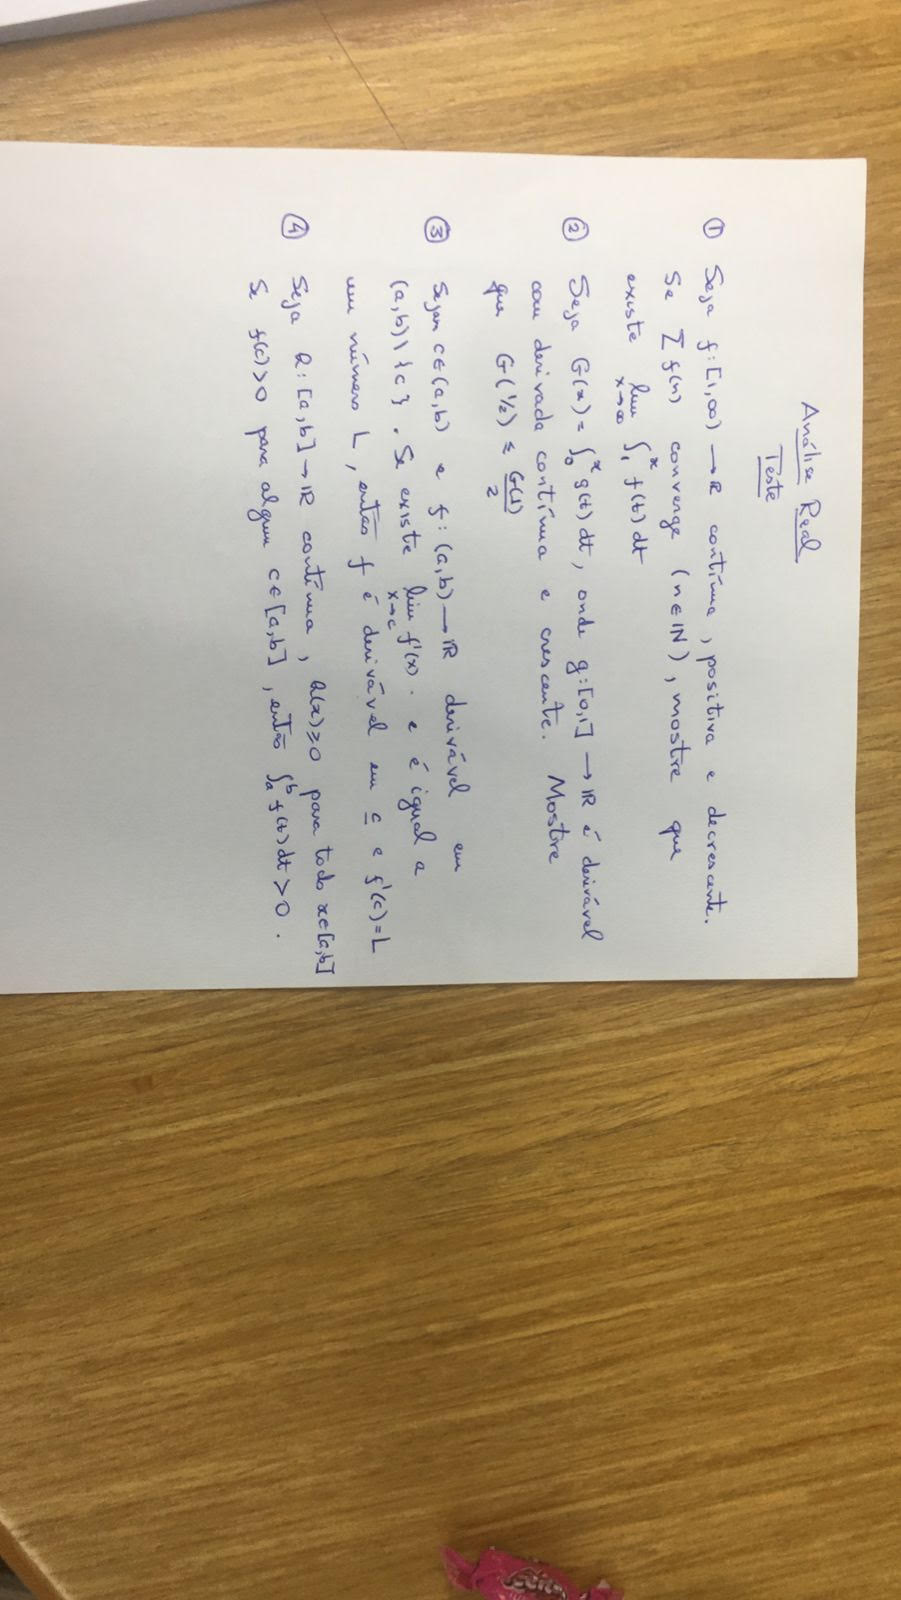 Análise Real
Teste
① Seja f: [1,∞) → ℝ contínua, positiva e decrescente.
Se ∑ f(n) converge (n ∈ ℕ), mostre que
existe lim x→∞ ∫₁ˣ f(t) dt
② Seja G(x) = ∫₀ˣ g(t) dt, onde g: [0,1] → ℝ é derivável
com derivada contínua e crescente. Mostre
que G(1/2) ≤ G(1)/2
③ Sejam c ∈ (a,b) e f: (a,b) → ℝ derivável em
(a,b) \ {c}. Se existe lim x→c f'(x) . e é igual a
um número L, então f é derivável em c e f'(c) = L
④ Seja h: [a,b] → ℝ contínua, h(x) ≥ 0 para todo x ∈ [a,b]
Se f(c) > 0 para algum c ∈ [a,b], então ∫ₐᵇ f(t) dt > 0.